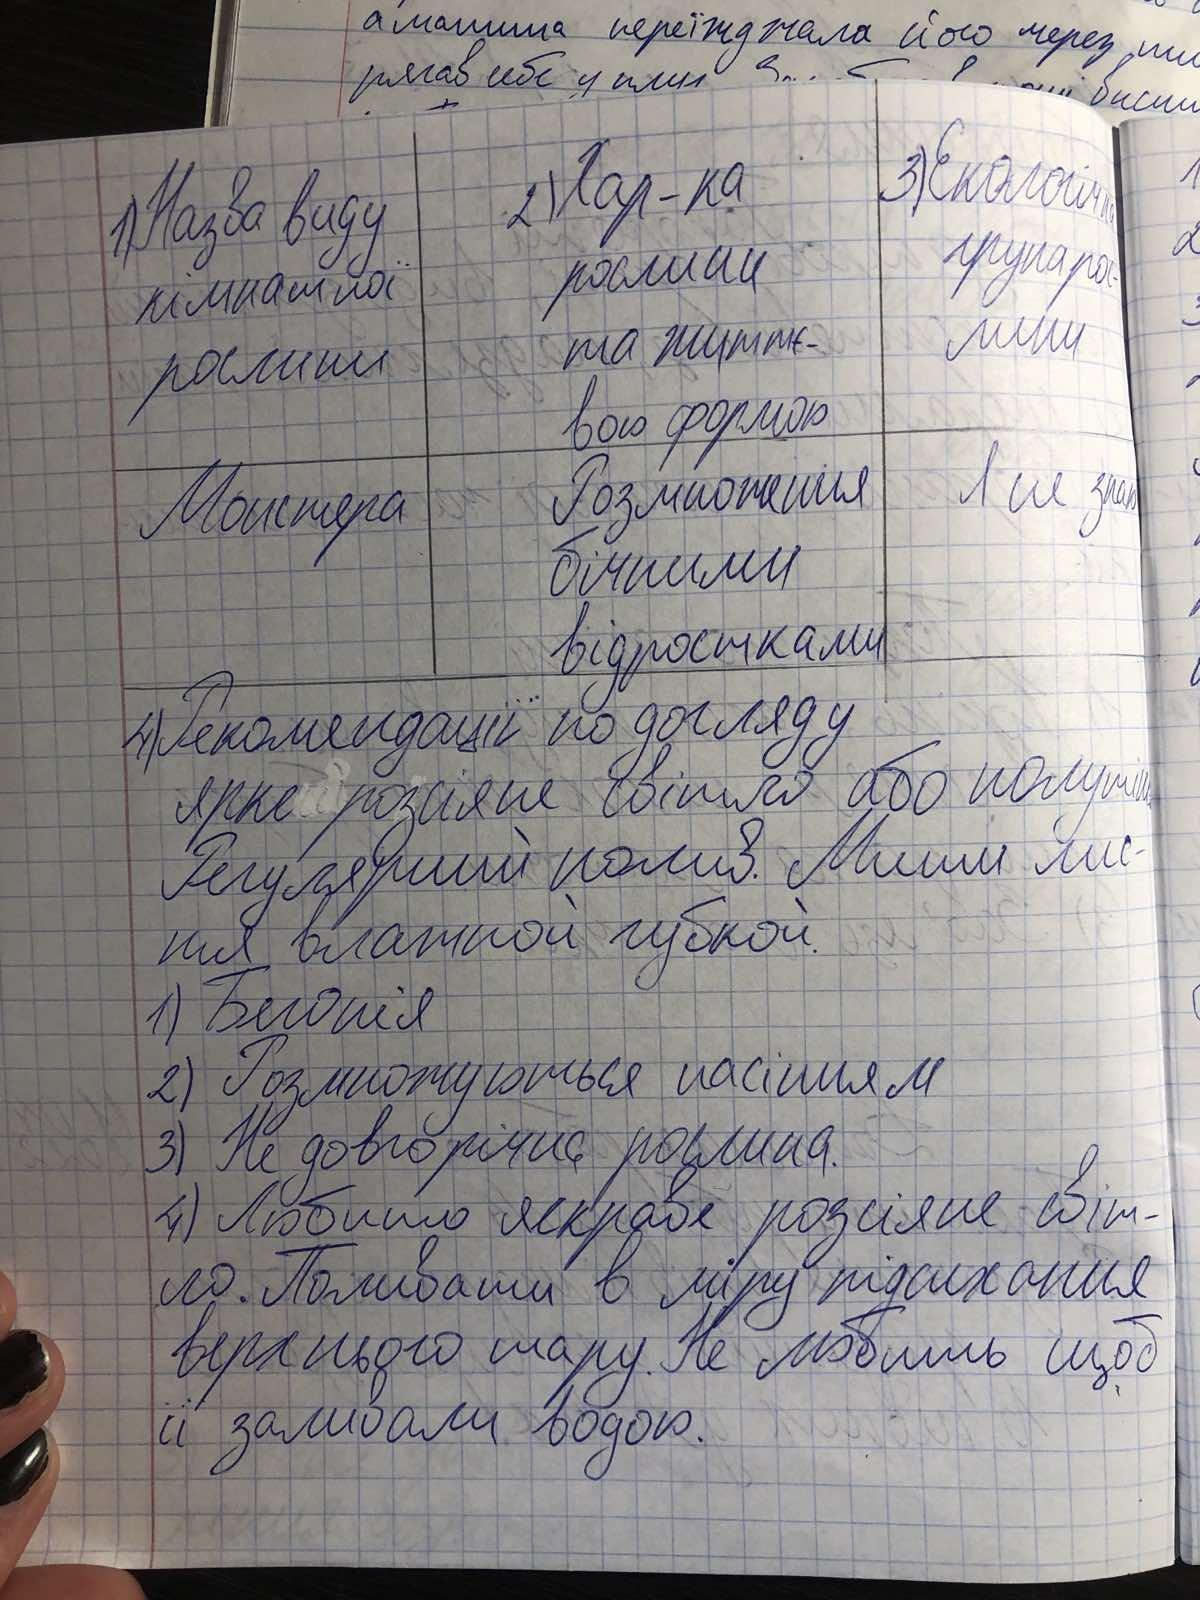 а машина переїжджала його через
рягав себе у
1) Назва виду
кімнатної
рослини
2) Хар-ка
рослини
та життє-
вою формою
3) Екологічна
група рос-
лини
Монстера
Розмноження
бічними
відростками
Я не знаю
4) Рекомендації по догляду
ярке розсіяне світло або
Регулярний полив. Мити лис-
тя влажной губкой.
1) Бегонія
2) Розмножуються насінням
3) Не довгорічна рослина.
4) Любить яскраве розсіяне світ-
ло. Поливати в міру підсихання
верхнього шару. Не любить щоб
її заливали водою.